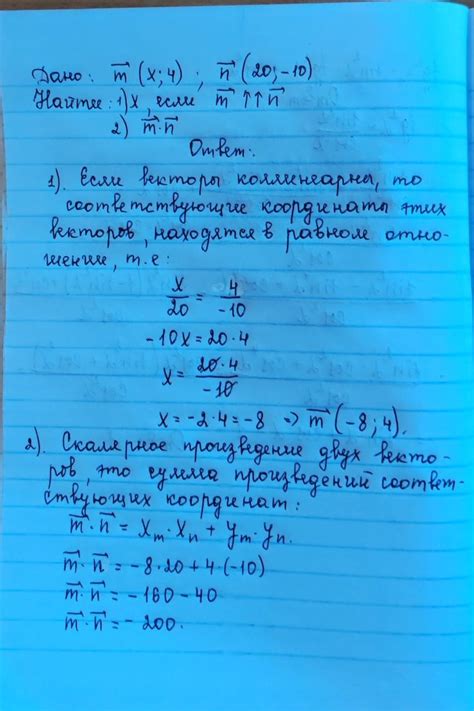 Дано: m⃗ (x; 4) ; n⃗ (20; -10)
Найти: 1) x, если m⃗ ↑↑ n⃗
2) m⃗·n⃗
Ответ:
1). Если векторы коллинеарны, то
соответствующие координаты этих
векторов, находятся в равном отно-
шении, т.е:
x/20 = 4/-10
-10x = 20·4
x = 20·4/-10
x = -2·4 = -8 => m⃗ (-8; 4).
2). Скалярное произведение двух векто-
ров, это сумма произведений соответ-
ствующих координат:
m⃗·n⃗ = xₘ·xₙ + yₘ·yₙ.
m⃗·n⃗ = -8·20 + 4·(-10)
m⃗·n⃗ = -160 - 40
m⃗·n⃗ = -200.